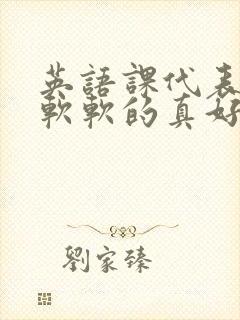 英語課代表
軟軟的真好
劉家臻